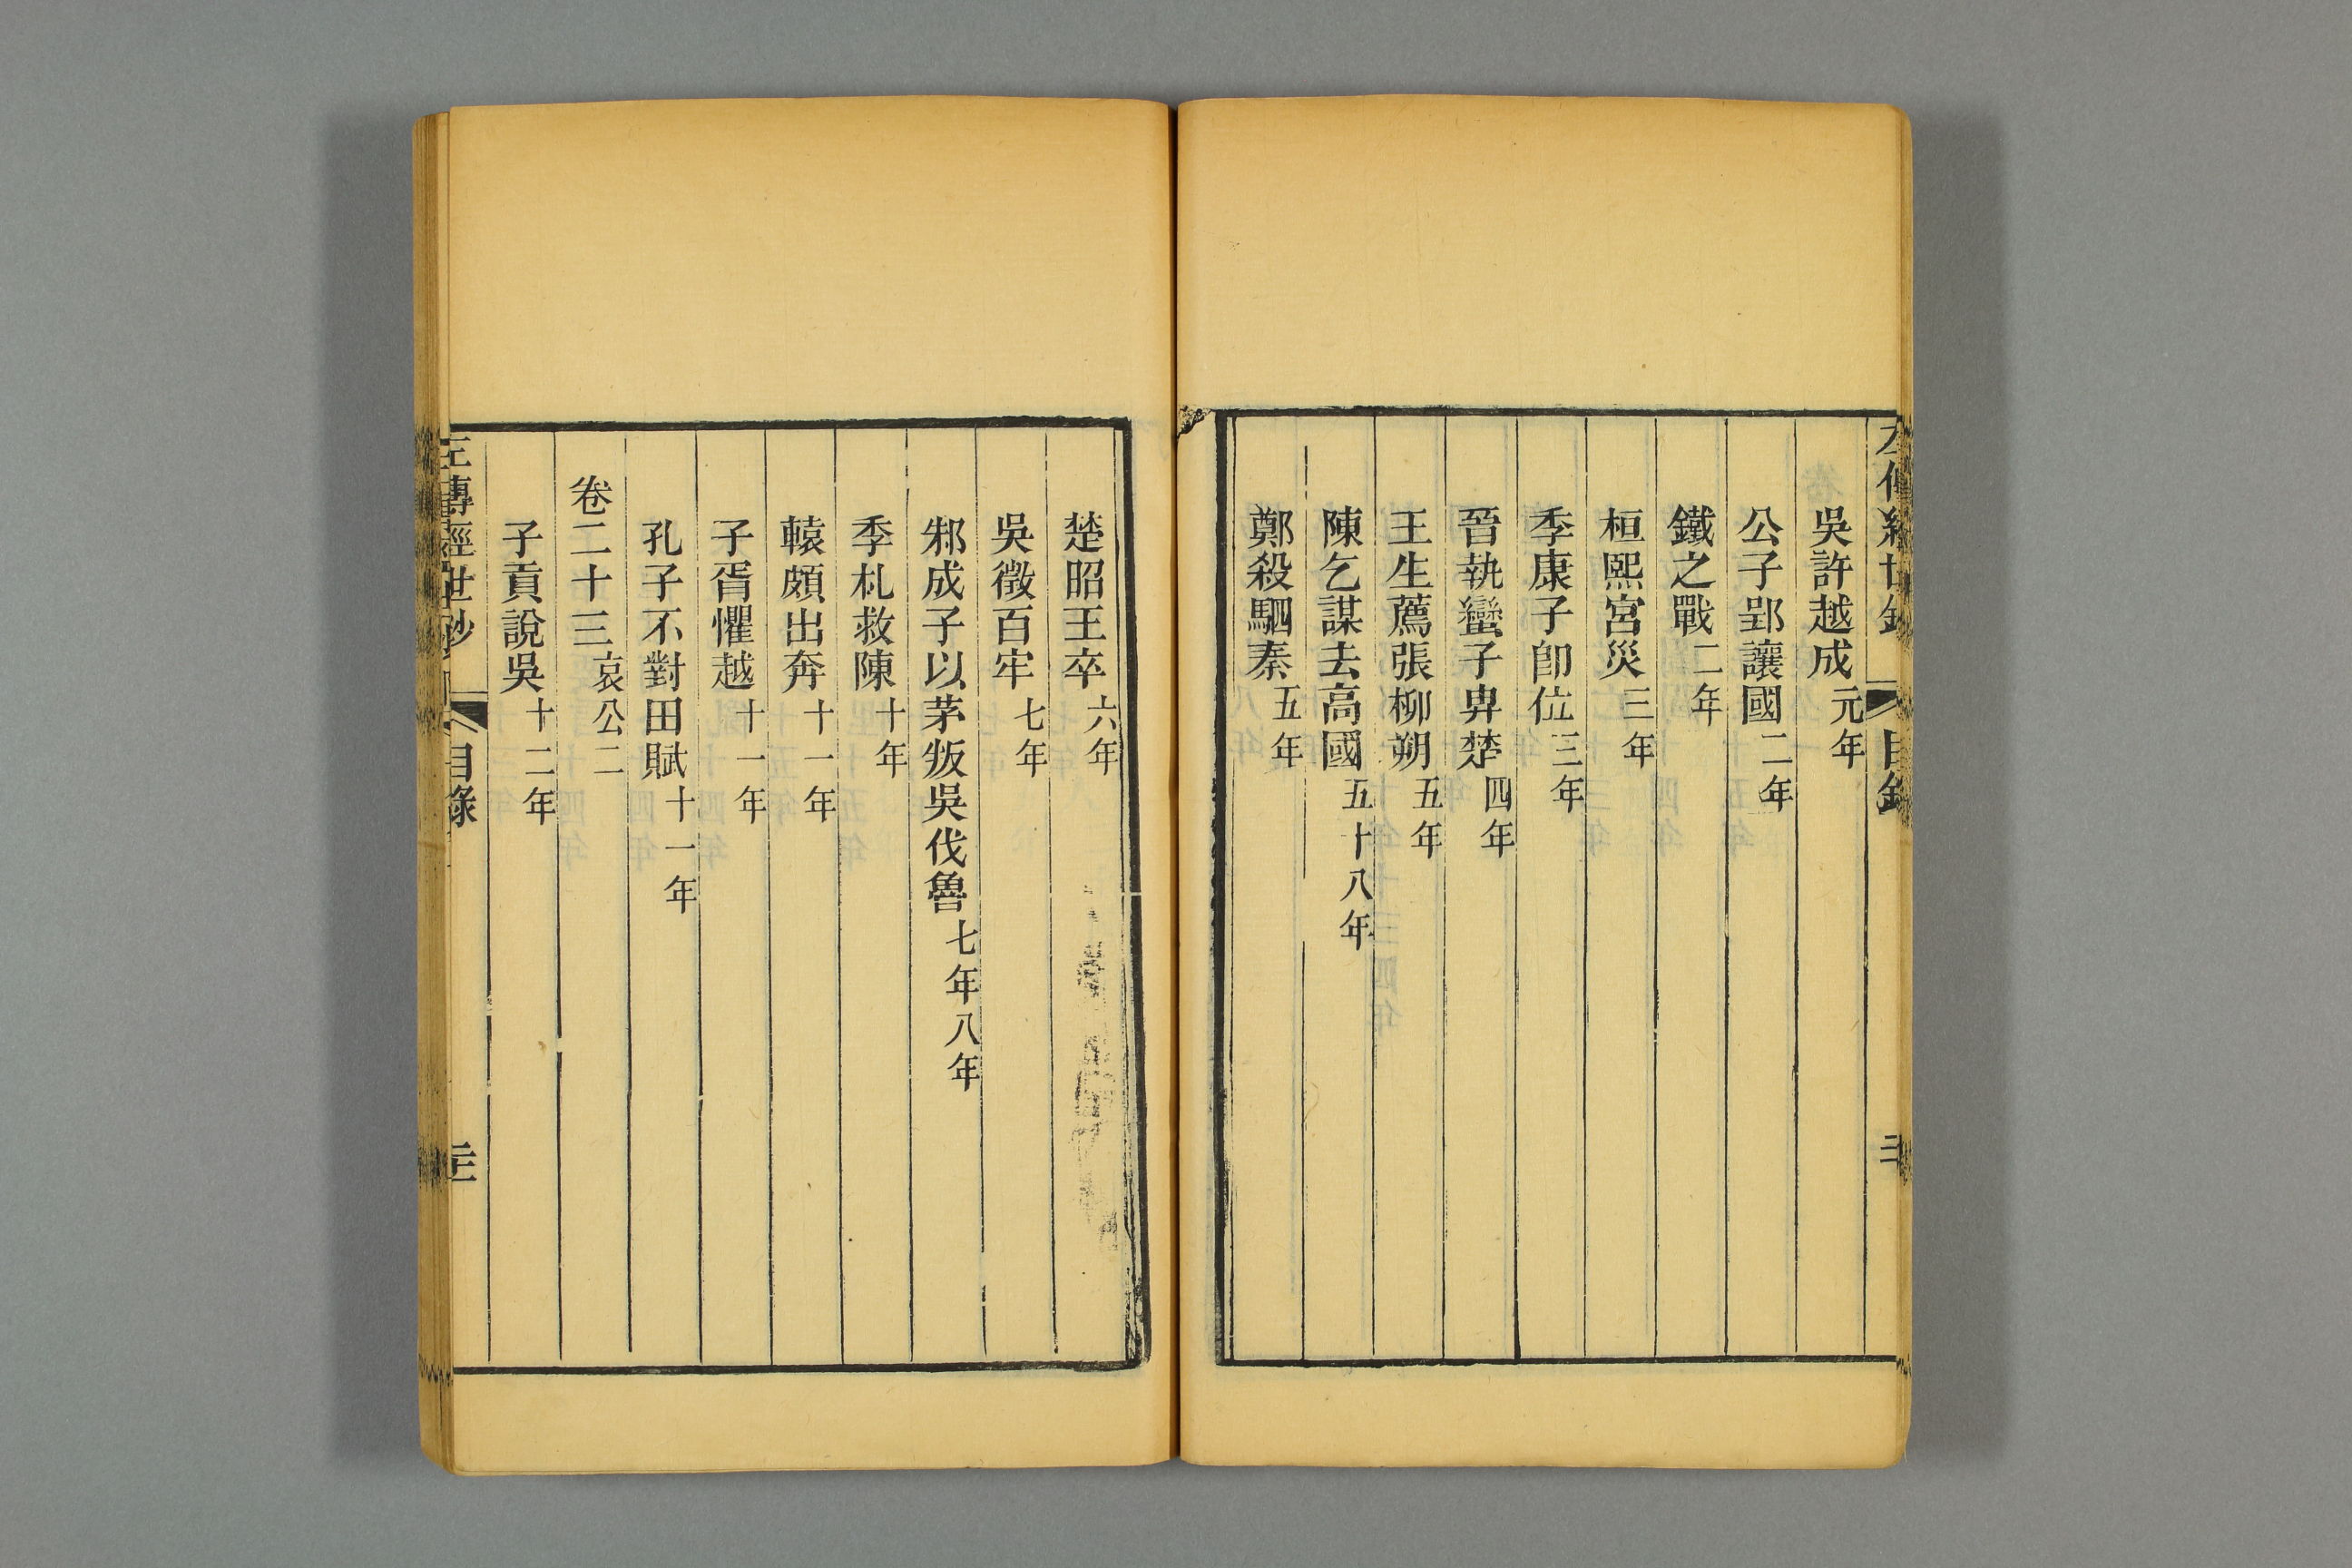 吳許越成元年
公子郢讓國二年
鐵之戰二年
桓熙宮災三年
季康子卽位三年
晉執蠻子畀楚四年
王生薦張柳朔五年
陳乞謀去高國五十八年
鄭殺駟秦五年
楚昭王卒六年
吳徵百牢七年
邾成子以茅叛吳伐魯七年八年
季札救陳十年
轅頗出奔十一年
子胥懼越十一年
孔子不對田賦十一年
卷二十三哀公二
子貢說吳十二年
左傳經世鈔 目錄